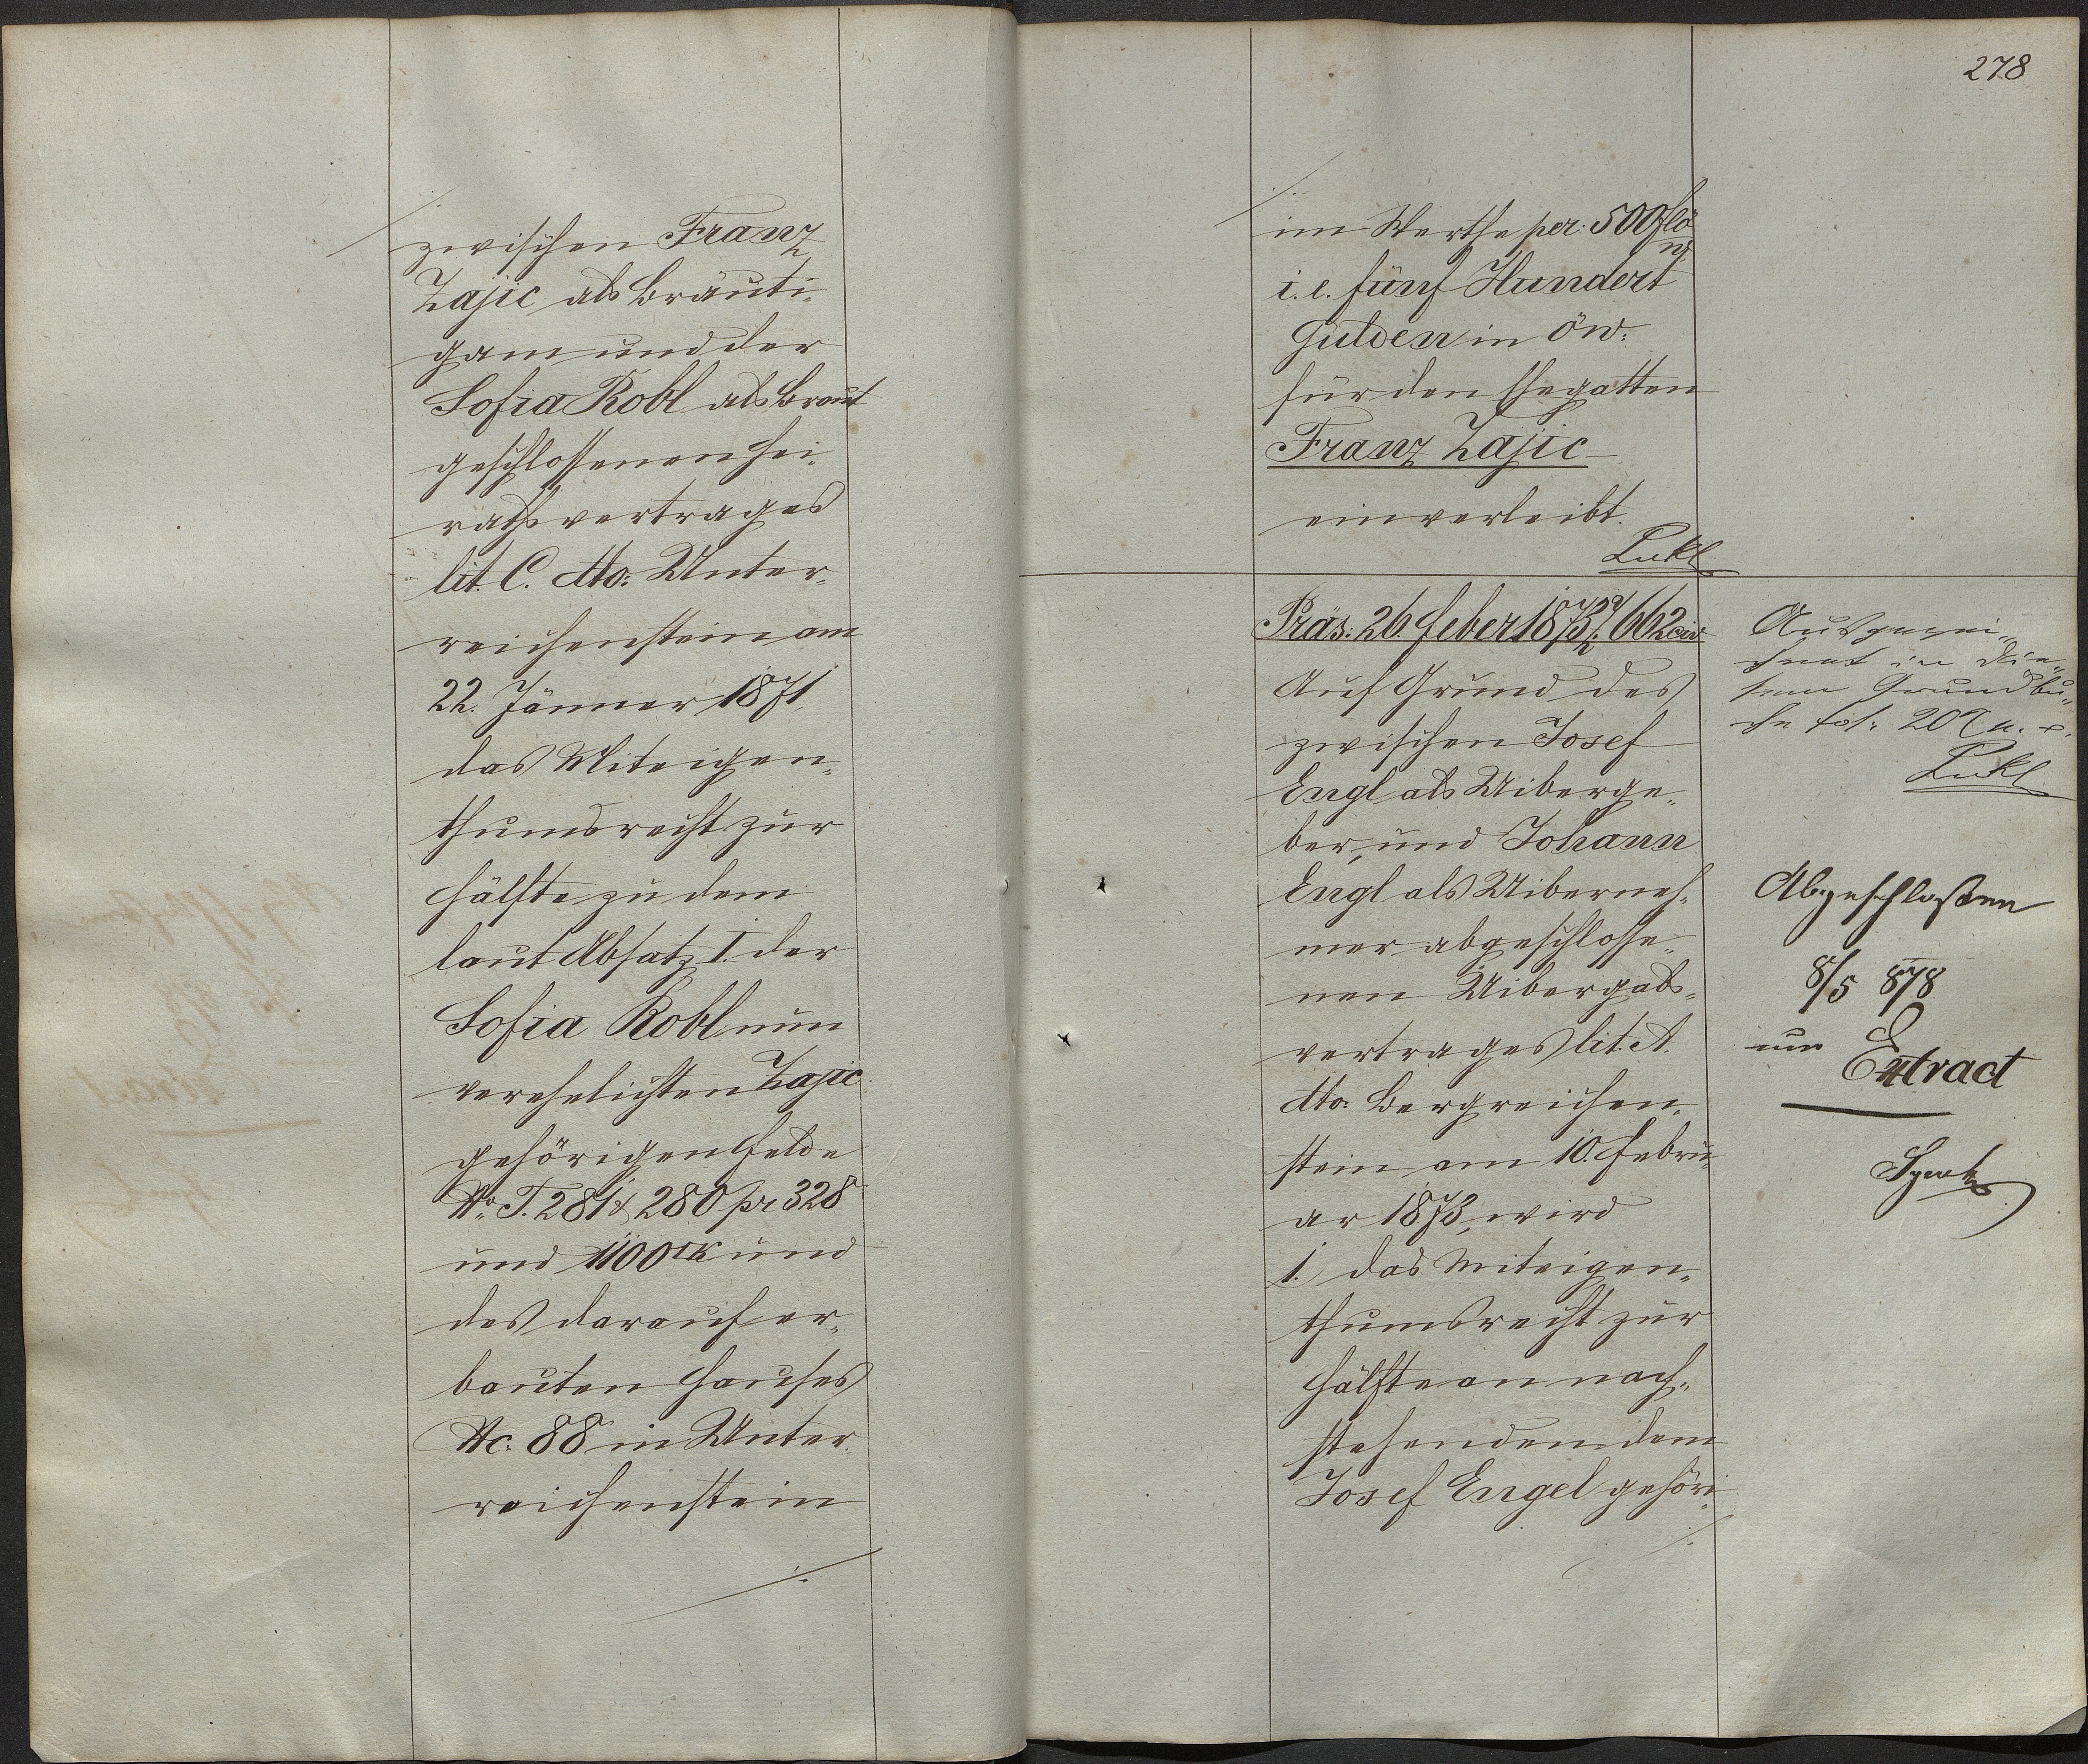 ./.
zwischen Franz
Zajic als Bräuti„
gam und der
Sofia Robl als Braut
geschlossenen Hei„
rathsvertrages
lit. C. dto: Unter„
reichenstein am
22. Jänner 1871
das Miteigen„
thumsrecht zur
Hälfte zu dem
laut Absatz I. der
Sofia Robl nun
verehelichten Zajic
gehörigen Felde
No. T. 281 & 280 pr 328
und 1100 □K und
des darauf er„
bauten Hauses
Nc: 88 in Unter„
reichenstein
./.
278
./.
im Werthe per: 500 fl ö
w
i. e. fünf Hundert
Gulden in öw:
für den Ehegatten
Franz Zajic
einverleibt.
Lukl
Präs: 26. Feber 1873 Z. 662 civ
Auf Grund des
zwischen Josef
Engl als Uiberge„
ber, und Johann
Engl als Uiberneh„
mer abgeschlosse„
nen Uibergabs„
vertrages lit. A.
dto: Bergreichen„
stein am 10. Febru„
ar 1873, wird
1. das Miteigen„
thumsrecht zur
Hälfte an nach„
stehenden dem
Josef Engel gehöri„
./.
Ausgezei„
chnet in die„
sem Grundbu„
che fol: 207
Lukl
Abgeschloßen
8/5 878
Extract